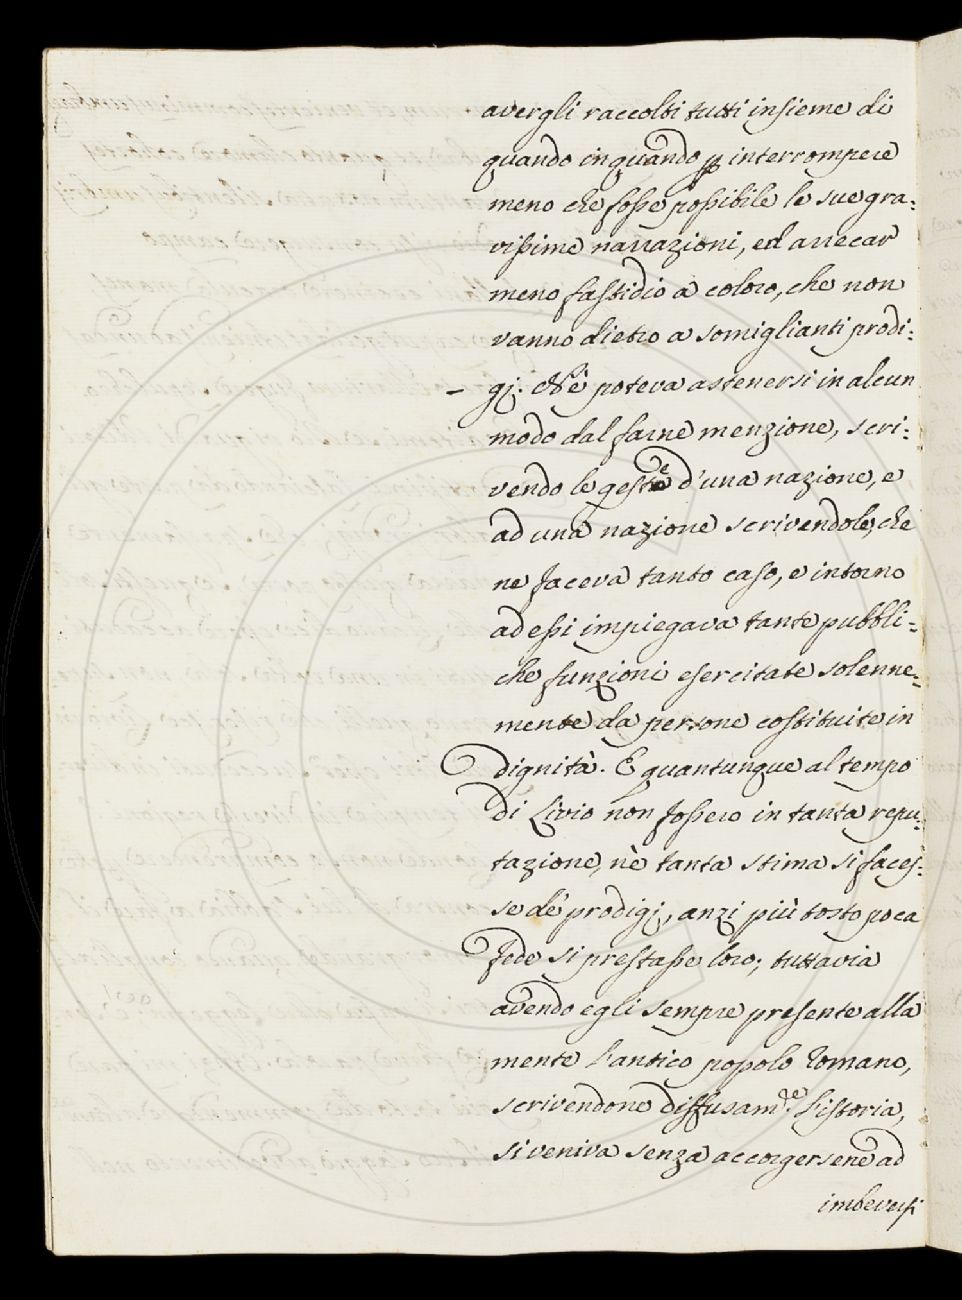 avergli raccolti tutti insieme di
quando in quando ꝑ interrompere
meno che fosse possibile le sue gra:
vissime narrazioni, ed arrecar
meno fastidio a coloro, che non
vanno dietro a somiglianti prodi:
– gj. Nè poteva astenersi in alcun
modo dal farne menzione, scri:
vendo le geste d'una nazione, e
ad una nazione scrivendole, che
ne faceva tanto caso, e intorno
ad essi impiegava tante pubbli:
che funzioni esercitate solenne:
mente da persone costituite in
dignità. E quantunque al tempo
di Livio non fossero in tanta repu:
tazione, nè tanta stima si faces:
se de' prodigj, anzi più tosto poca
fede si prestasse loro; tuttavia
avendo egli sempre presente alla
mente l'antico popolo Romano,
scrivendone diffusam.te l'istoria,
si veniva senza accorgersene ad
imbeversi